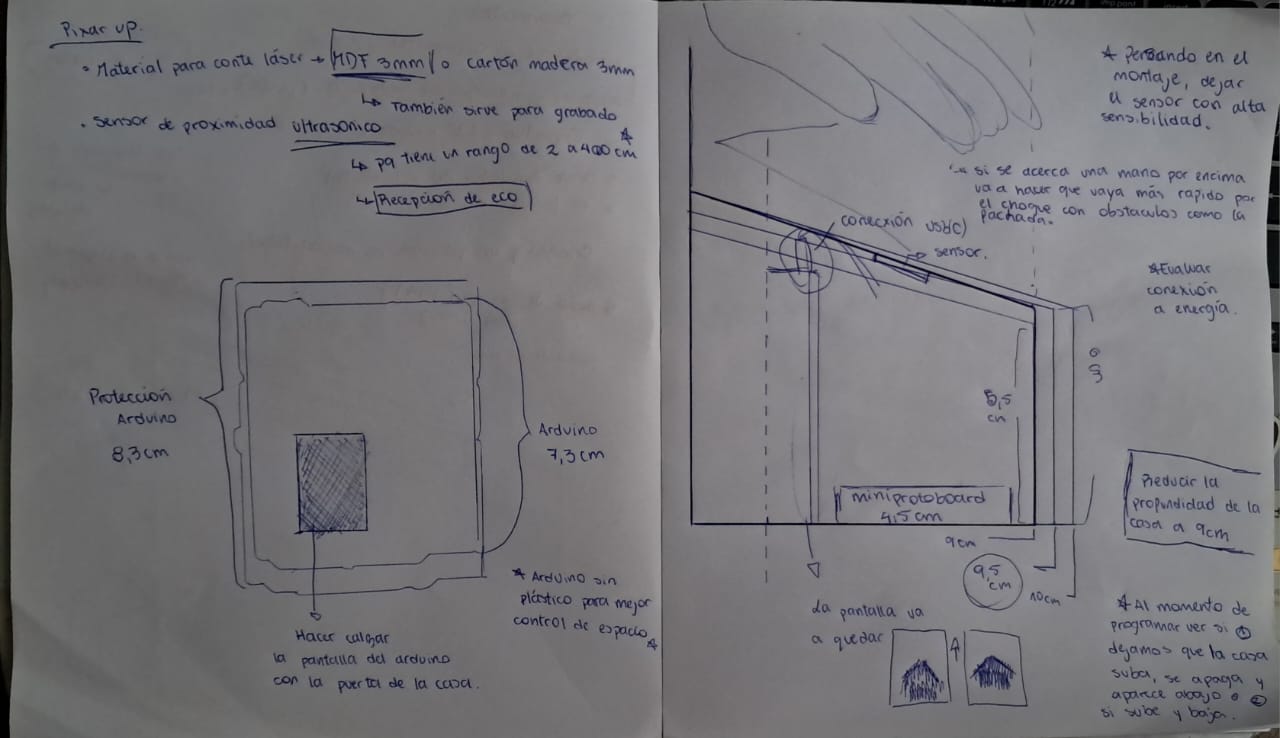 Pixar up.
• Material para corte láser → MDF 3mm / o cartón madera 3mm
↳ También sirve para grabado
• Sensor de proximidad ultrasonico
↳ pq tiene un rango de 2 a 400 cm
↳ Recepción de eco
Protección
Arduino
8,3 cm
Arduino
7,3 cm
* Arduino sin
plástico para mejor
control de espacio *
Hacer calzar
la pantalla del arduino
con la puerta de la casa.
* Pensando en el
montaje, dejar
el sensor con alta
sensibilidad.
↳ si se acerca una mano por encima
va a hacer que vaya más rapido por
el choque con obstaculos como la
pachada.
conección usb(c)
→ sensor.
* Evaluar
conexión
a energía.
5,5
cm
miniprotoboard
4,5 cm
9cm
9,5
cm
10cm
Reducir la
profundidad de la
casa a 9cm
La pantalla va
a quedar
* Al momento de
programar ver si ①
dejamos que la casa
suba, se apaga y
aparece abajo o ②
si sube y baja.